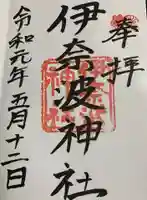 奉拝
伊奈波神社
令和元年五月十二日